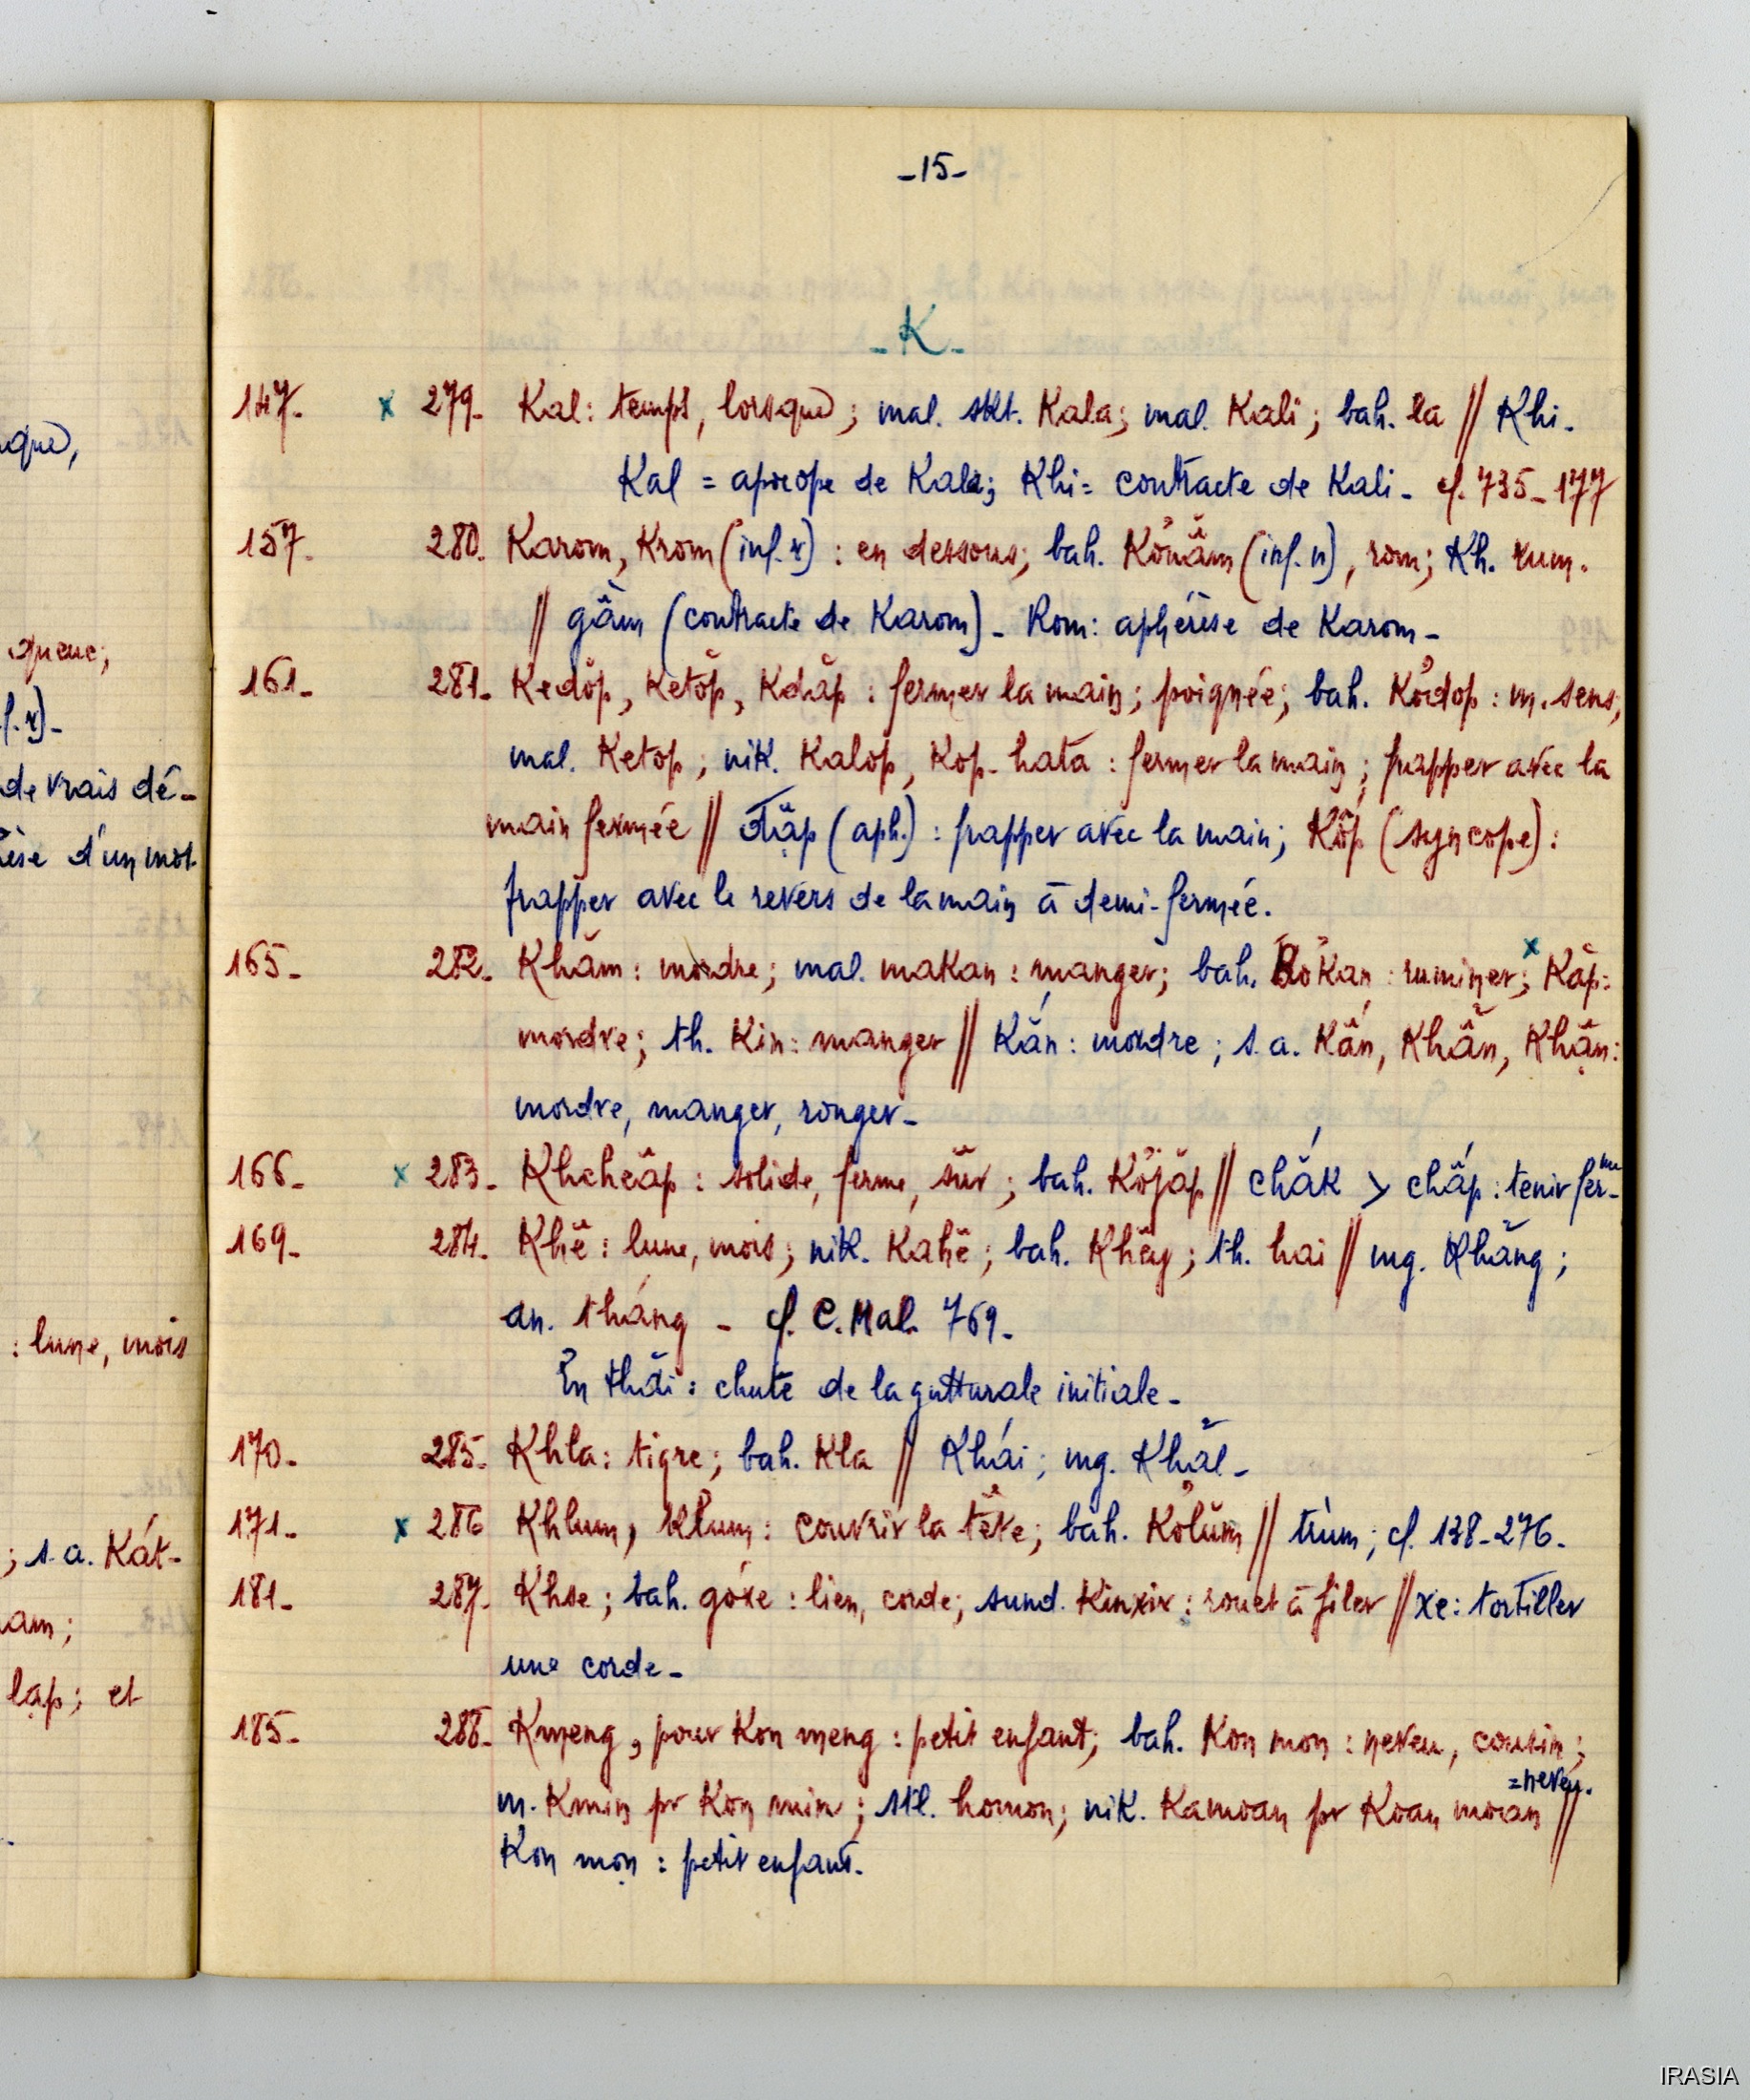 que,
queue;
f. r)-
de vrais dé-
èse d'un mot
: lune, mois
; s.a. Kát-
am;
lạp; et
-15-
-K-
147- x 279- Kal: temps, lorsque; mal. skt. Kala; mal. Kali; bah. la // Khi.
Kal = apocope de Kala; Khi = contracte de Kali- cf. 735-177
157- 280. Karom, Krom (inf. r) : en dessous; bah. (inf. n), rom; Kh. rum.
// gầm (contracte de Karom)- Rom: aphérèse de Karom-
161- 281- Kedŏp, Ketŏp, Kdăp : fermer la main; poignée; bah. Kơdop : m. sens;
mal. Ketop; nik. Kalop, Kop-hata : fermer la main; frapper avec la
main fermée // (aph.) : frapper avec la main; Kốp (syncope) :
frapper avec le revers de la main à demi-fermée.
165- 282- Khăm : mordre; mal. makan : manger; bah. ruminer; x Kăp:
mordre; th. Kin: manger // Kắn : mordre; s.a. Kấn, Khẫn, Khặn:
mordre, manger, ronger-
166- x 283- Khcheăp : solide, ferme, sûr; bah. Kơjăp // chắk > chắp : tenir fer-me
169- 284- Khê : lune, mois; nik. Kahê; bah. Khêy; th. hai // mg. Khảng;
an. tháng - cf. C. Mal. 769-
En thăi : chute de la gutturale initiale-
170- 285- Khla: tigre; bah. Kla // Khái; mg. Khảl-
171- x 286 Khlum, Klum: couvrir la tête; bah. Kơlŭm // trùm; cf. 138-276-
181- 287- Khse; bah. gơxe : lien, corde; sund. Kinxix : rouet à filer // xe: tortiller
une corde-
185- 288- Kmeng, pour Kon meng : petit enfant; bah. Kon mon : neveu, cousin;
m. Kmin pr Kon min; stl. homon; nik. Kamoan pr Koan moan =neveu. //
Kon mọn : petit enfant.
IRASIA